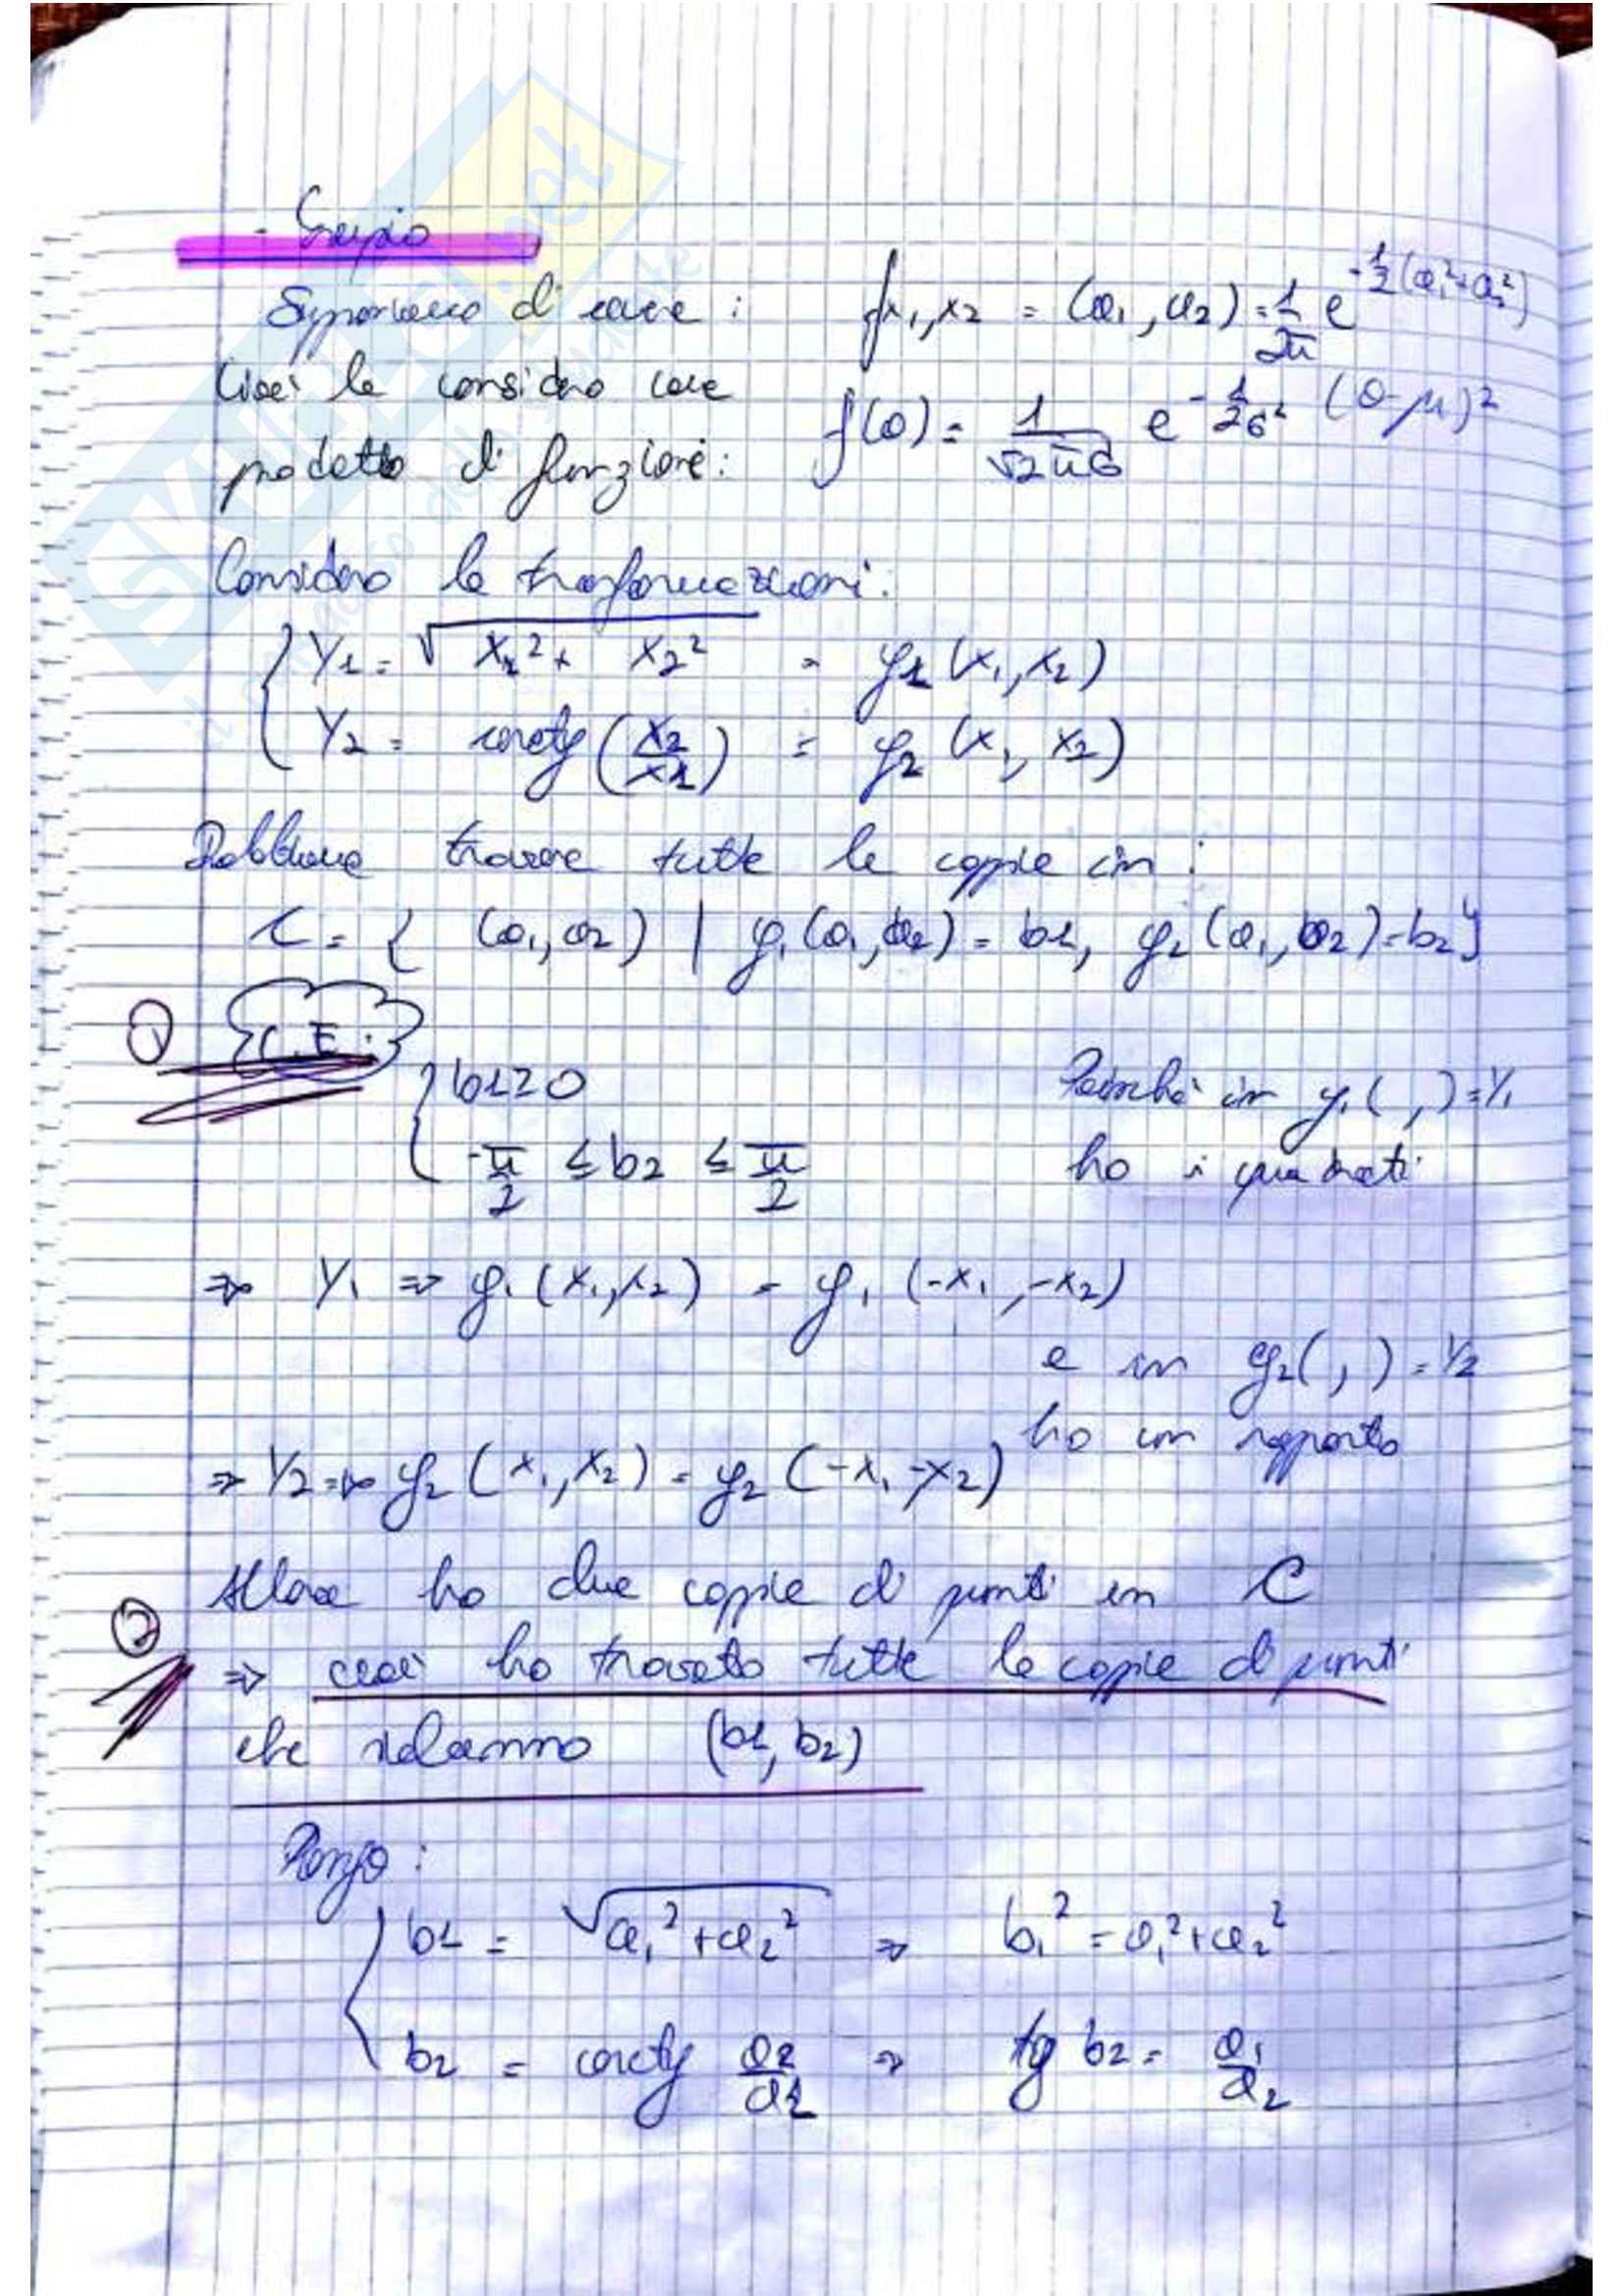 - Esempio
Supponiamo di avere : fx1,x2 = (a1, a2) = 1/2π e^-1/2(a1²+a2²)
Cioè le considero come f(a) = 1/√2πσ e^-1/2σ² (a-μ)²
prodotto di funzioni:
Considero le trasformazioni:
{ Y1 = √x1² + x2² = g1 (x1, x2)
Y2 = arctg (x2/x1) = g2 (x1, x2)
Dobbiamo trovare tutte le coppie in :
C = { (a1, a2) | g1 (a1, a2) = b1, g2 (a1, a2) = b2 }
① C.E. :
{ b1 ≥ 0 Poichè in g1 ( , ) = Y1
-π/2 ≤ b2 ≤ π/2 ho i quadrati
⇒ Y1 ⇒ g1 (x1, x2) = g1 (-x1, -x2)
e in g2 ( , ) = Y2
ho un rapporto
⇒ Y2 ⇒ g2 (x1, x2) = g2 (-x1, -x2)
Allora ho due coppie di punti in C
② ⇒ cioè ho trovato tutte le coppie di punti
che ridanno (b1, b2)
Pongo :
{ b1 = √a1² + a2² ⇒ b1² = a1² + a2²
b2 = arctg a2/a1 ⇒ tg b2 = a1/a2
SKUOLA.net